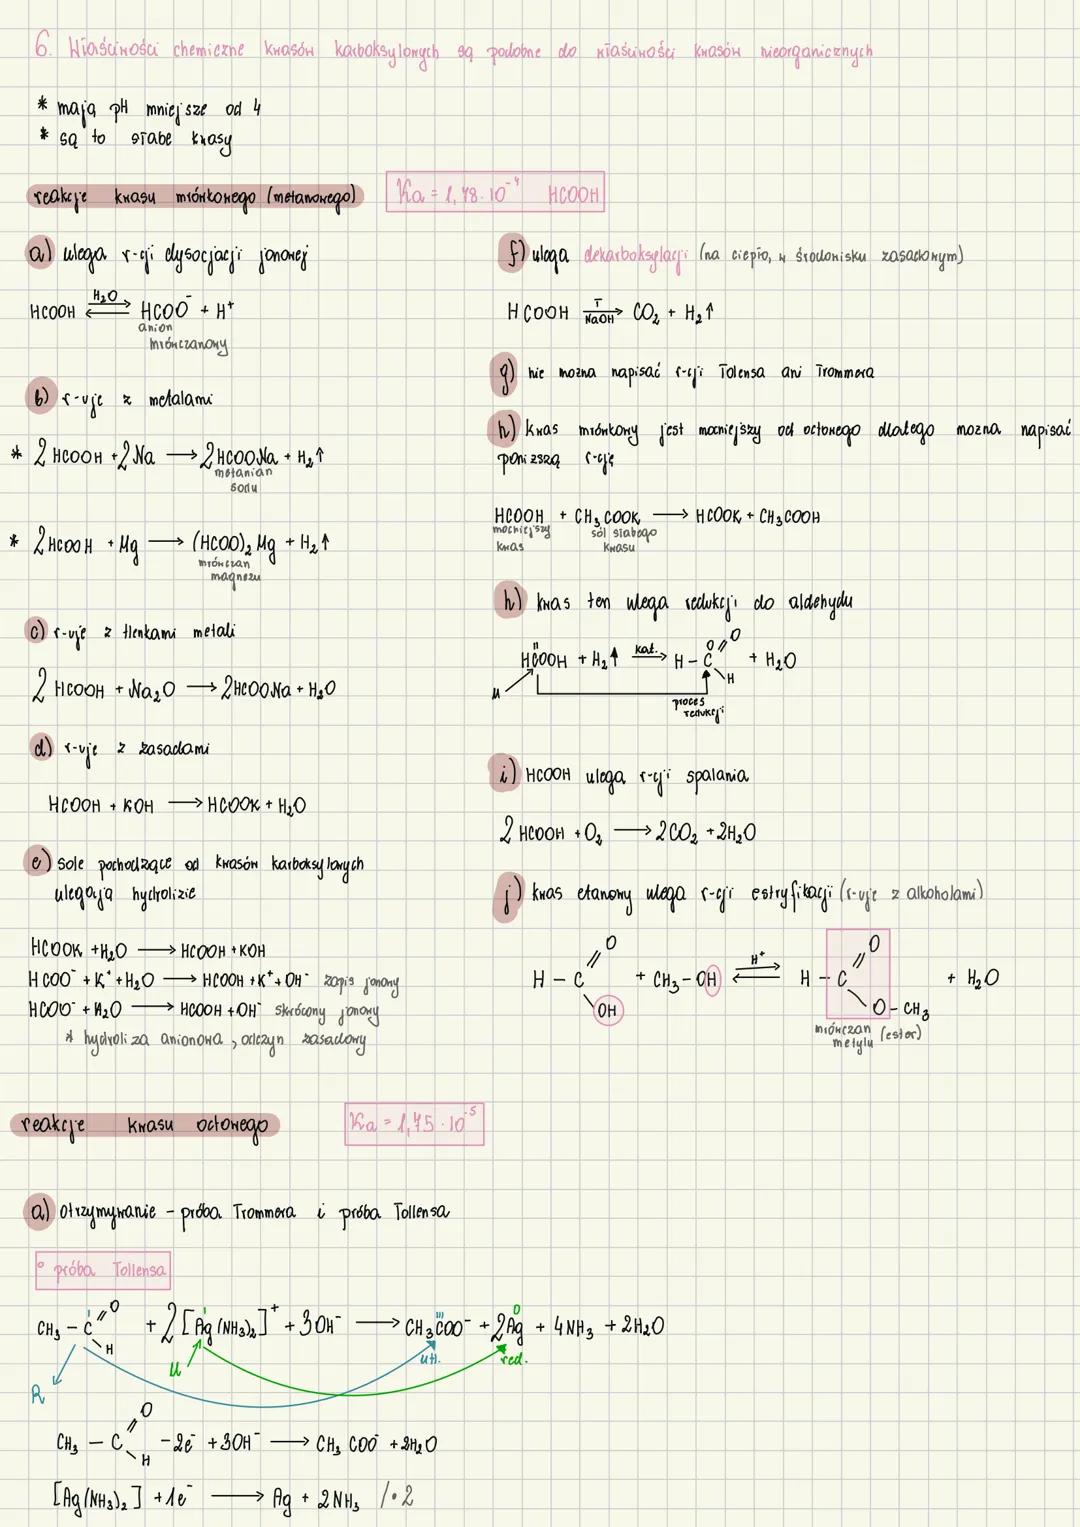 6. Właściwości chemiczne kwasów karboksylowych są podobne do właściwości kwasów nieorganicznych
* mają pH mniejsze od 4
* są to słabe kwasy
reakcje kwasu mrówkowego (metanowego)
Ka = 1,78·10⁻⁴ HCOOH
a) ulega r-cji dysocjacji jonowej
HCOOH ⇌ HCOO⁻ + H⁺
H₂O
anion
mrówczanowy
b) r-uje z metalami
* 2HCOOH + 2Na → 2HCOONa + H₂↑
metanian
sodu
* 2HCOOH + Mg → (HCOO)₂Mg + H₂↑
mrówczan
magnezu
c) r-uje z tlenkami metali
2 HCOOH + Na₂O → 2HCOONa + H₂O
d) r-uje z zasadami
HCOOH + KOH → HCOOK + H₂O
e) sole pochodzące od kwasów karboksylowych
ulegają hydrolizie
HCOOK + H₂O → HCOOH + KOH
HCOO⁻ + K⁺ + H₂O → HCOOH + K⁺ + OH⁻ zapis jonowy
HCOO⁻ + H₂O → HCOOH + OH⁻ skrócony jonowy
* hydroliza anionowa, odczyn zasadowy
f) ulega dekarboksylacji (na ciepło, w środowisku zasadowym)
HCOOH → CO₂ + H₂↑
T
NaOH
g) nie można napisać r-cji Tolensa ani Trommera
h) kwas mrówkowy jest mocniejszy od octowego dlatego można napisać
poniższą r-cję
HCOOH + CH₃COOK → HCOOK + CH₃COOH
mocniejszy
kwas
sól słabego
kwasu
h) kwas ten ulega redukcji do aldehydu
II
HCOOH + H₂↑ kat. → H - C O H + H₂O
O
u
proces
redukcji
i) HCOOH ulega r-cji spalania
2 HCOOH + O₂ → 2CO₂ + 2H₂O
j) kwas etanowy ulega r-cji estryfikacji (r-uje z alkoholami)
H - C O OH + CH₃ - OH ⇌ H - C O O - CH₃ + H₂O
H⁺
mrówczan
metylu (ester)
reakcje kwasu octowego
Ka = 1,75·10⁻⁵
a) otrzymywanie - próba Trommera i próba Tollensa
° próba Tollensa
CH₃ - C O H + 2[Ag(NH₃)₂]⁺ + 3OH⁻ → CH₃COO⁻ + 2Ag + 4NH₃ + 2H₂O
I I III O
R u utl. red.
CH₃ - C O H - 2e⁻ + 3OH⁻ → CH₃COO⁻ + 2H₂O
[Ag(NH₃)₂] + 1e⁻ → Ag + 2NH₃ /·2